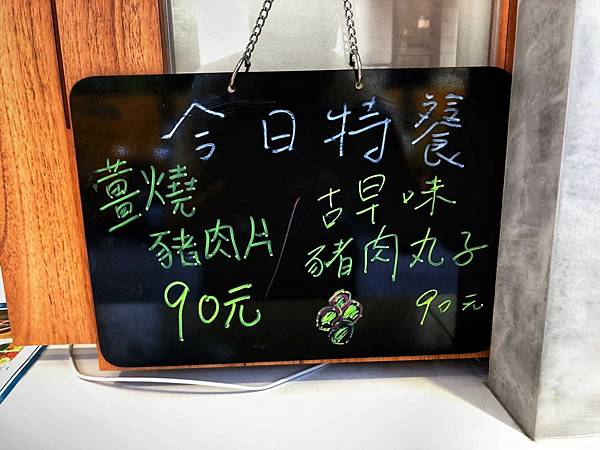 今日特餐
薑燒
豬肉片
90元
/
古早味
豬肉丸子
90元